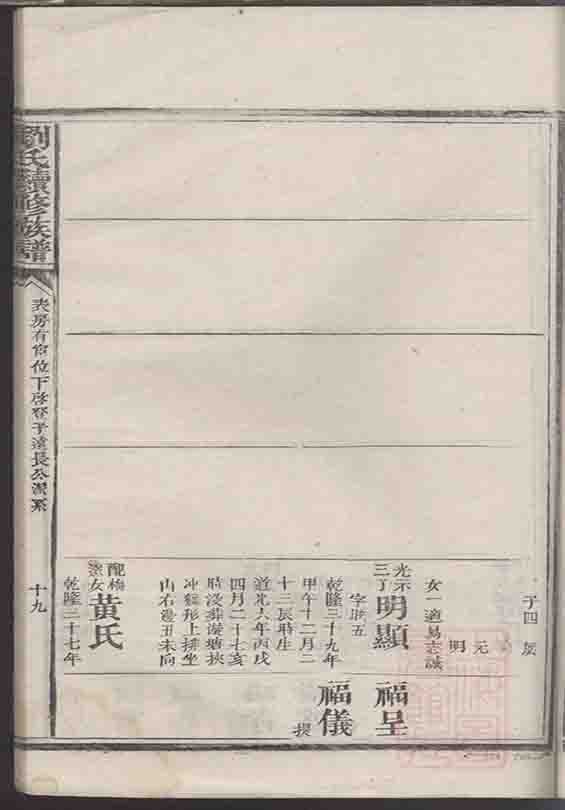 子四
元
明
女一適易志誠
光示
三子
明顯
字財五
乾隆三十九年
甲午十二月二
十三辰時生
道光六年丙戌
四月二十七亥
時歿葬
冲獅形上排坐
山右邊丑未向
配
女
黃氏
乾隆三十七年
福呈
福儀
提
劉氏續修族譜
表房有 位下啓登子遠長公派系
十九